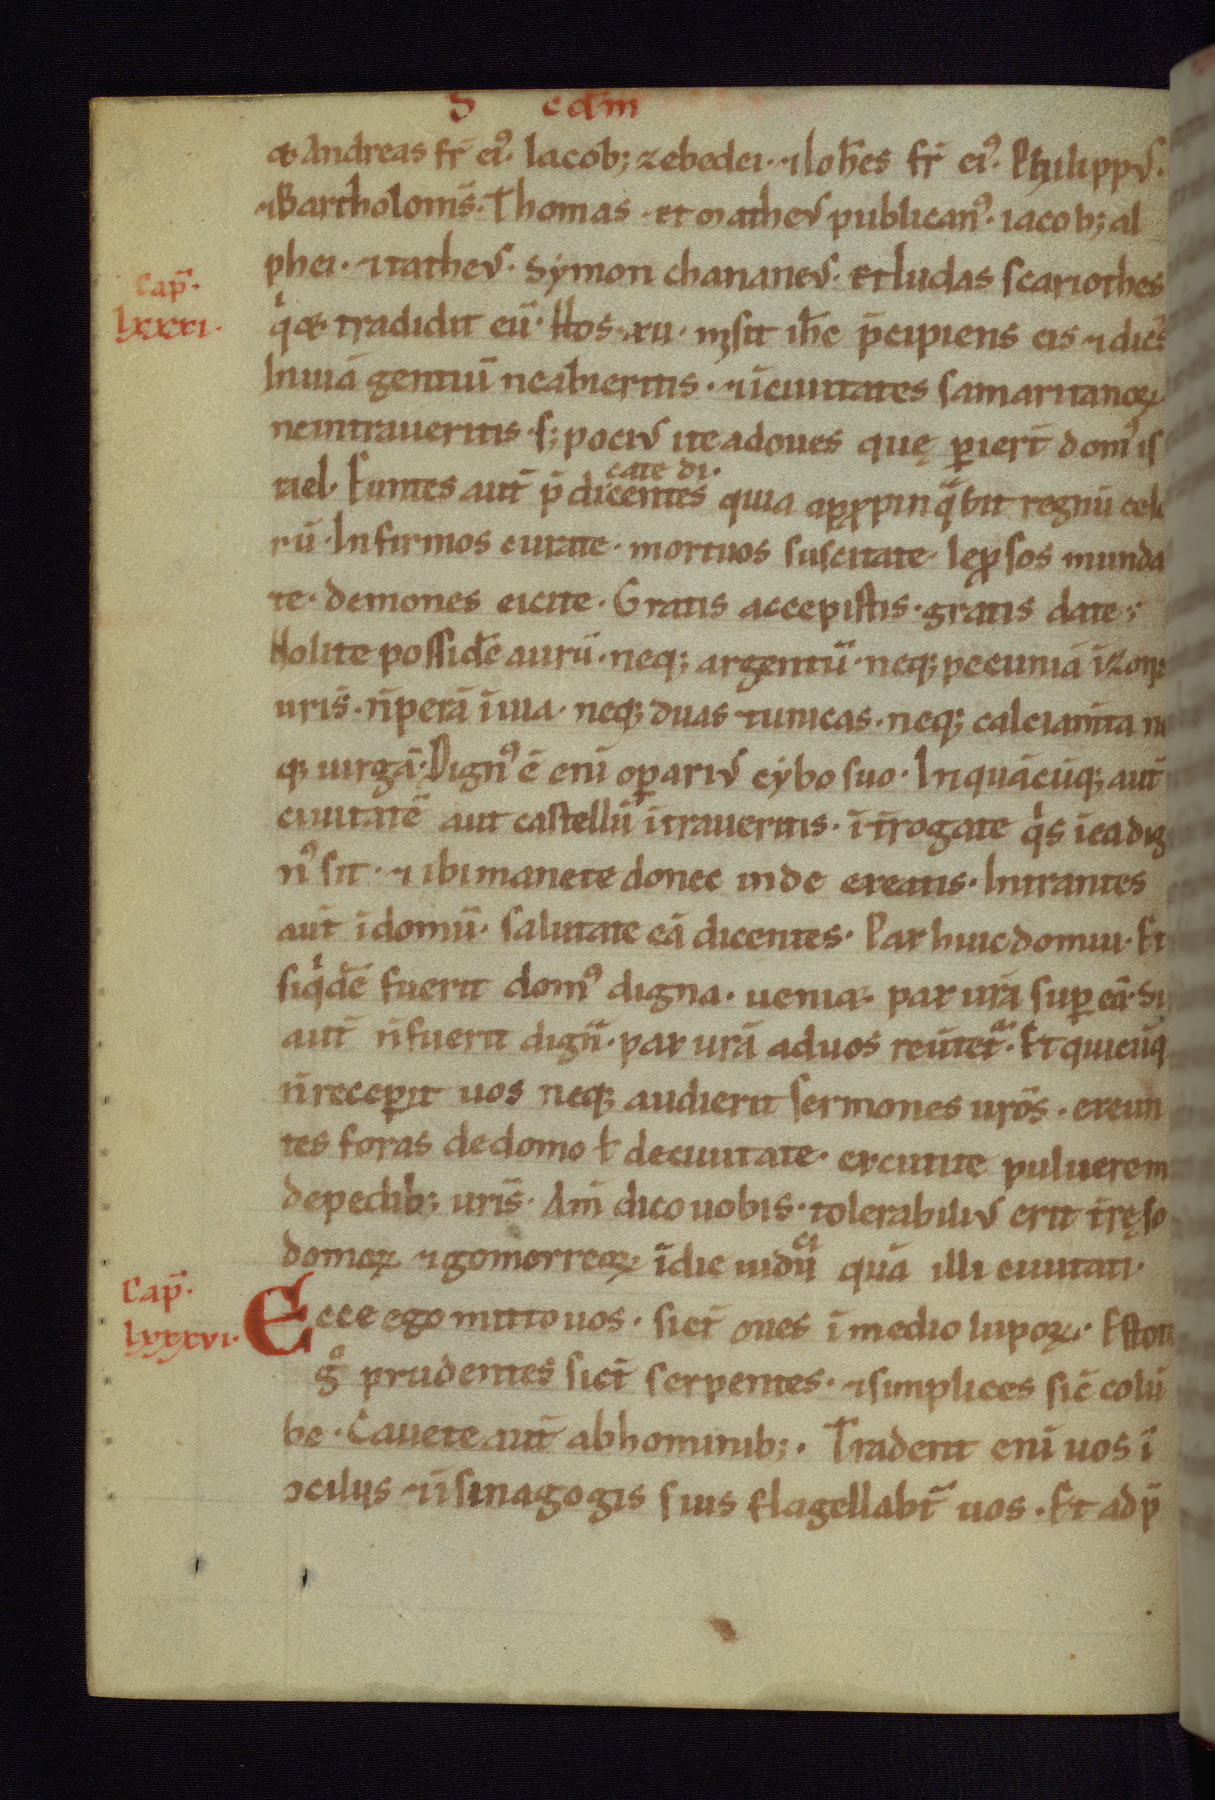 S cdm
& Andreas fr̄ ei᷒. Iacob; zebedei. ⁊ Ioh̄es fr̄ ei᷒. Phylippus.
⁊ Bartholom̄s. Thomas. et matheus publican᷒. iacob; al
phei. ⁊ tatheus. Symon chananeus. Et Iudas scariothes
Cap̄.
lxxxi.
qͥ & tradidit eū. Hos .xii. misit ih̄c p̄cipiens eis ⁊ dicēs
In uiā gentiū ne abieritis. ⁊ ī ciuitates samaritanoꝝ
ne intraueritis. s; pocius ite ad oues quę ꝑiert̄ dom᷒ is
rael. Euntes aut̄ p̄dicentes quia apꝓpinqͣbit regnū celo
cate di.
rū. Infirmos curate. mortuos suscitate. lepꝓsos munda
te. demones eicite. Gratis accepistis. gratis date;
Nolite possidēe aurū. neq; argentū. neq; pecuniā ī zonis
uris̄. n̄ perā ī uia. neq; duas tunicas. neq; calciamta ne
q; uirgā. Dign᷒ ē enī oꝑarius cybo suo. In quācūq; aut̄
ciuitatē aut castellū ītraueritis. īt̄rogate qͥs ī ea dig
n᷒ sit. ⁊ ibi manete donec inde exeatis. Intrantes
aut̄ ī domū. salutate eā dicentes. Pax huic domui. Et
siqͥdē fuerit dom᷒ digna. ueniat pax ur̄a suꝑ eā. Si
aut̄ n̄ fuerit dign̄. pax ur̄a ad uos reūtet̄. Et quicūq
n̄ receꝑit uos neq; audierit sermones urōs. exeun
tes foras de domo ł de ciuitate. excutite puluerem
de pedib; uris̄. Am̄ dico uobis. tolerabilius erit t̄rę so
domoꝝ ⁊ gomorreoꝝ ī die iudicii quā illi ciuitati.
Cap̄.
lxxxvi.
Ecce ego mitto uos. sict̄ oues ī medio lupoꝝ. Estote
gͦ prudentes sict̄ serpentes. ⁊ simplices sic̄ colū
be. Cauete aut̄ ab hominib;. Tradent enī uos ī
ↄciliis ⁊ ī sinagogis suis flagellabt̄ uos. Et ad p̄